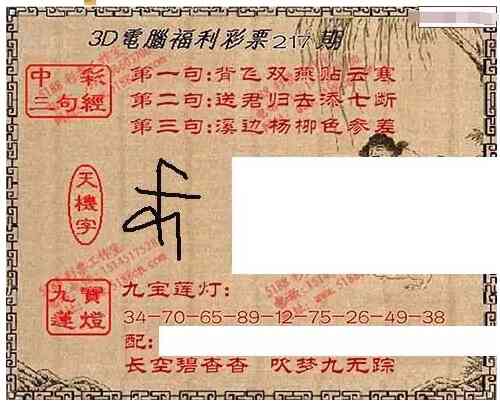 3D電腦福利彩票217期
中彩
三句經
第一句:背飞双燕贴云寒
第二句:送君归去添七断
第三句:溪边杨柳色参差
天機字
九寶
蓮燈
九宝莲灯:
34-70-65-89-12-75-26-49-38
配:
长空碧杳杳 吹梦九无踪